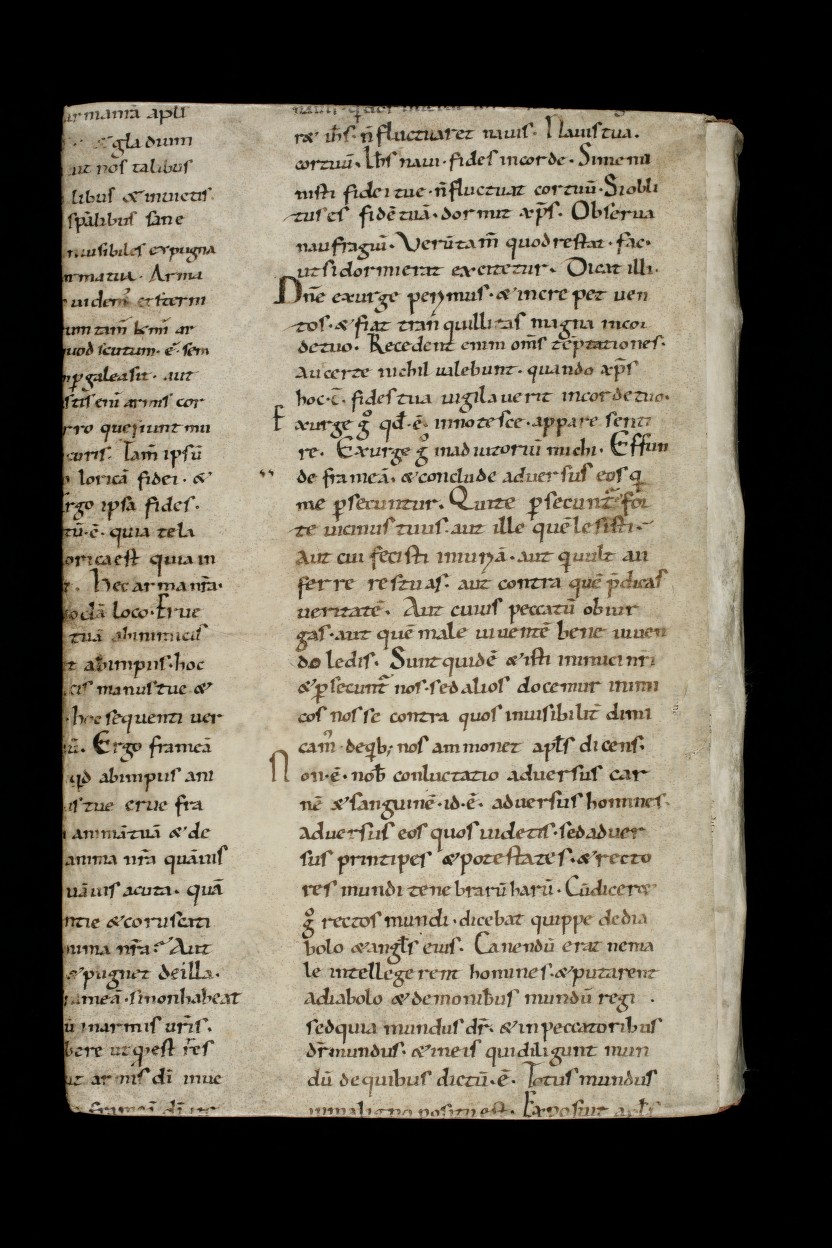 armariā apli
gladium
ut nos talibus
libus & inuictis
spālibus sane
inuisibiles expugna
armatur. Arma
uidem᷒ et ferrum
um tam̄ ar
quod scutum. ē. sem
galea sit. aut
istis eni armis cor
quer̄unt mu
Iam̄ ipsū
loricā fidei. &
ergo ipsa fides.
tū. ē. quia tela
lorica est quia in
Hec arma nr̄a.
loco. Erue
tuā abinimicis
t abimpiis. hoc
manus tue &
hoc sequenti uer
Ergo frameā
qd̄ abimpiis ani
tue erue fra
animā tuā & de
anima nr̄a quāuis
uāuis acuta. quā
ntie & coruscati
nima nr̄a? Aut
& pugnet de illa.
rameā. sinon habeat
in armis ur̄is.
bere ut
ut armis dī
frameā dī
ræ ihs. n̄ fluctuaret nauis. Nauis tua.
cor tuū. Ihs naui. fides in corde. Simemi
nisti fidei tue. n̄ fluctuat cor tuū. Si obli
tus es fidē tuā. dormit xp̄s. Obserua
naufragiū. Verūtam̄ quod restat. fac.
ut si dormierat excitetur. Dicat illi.
Dn̄e exurge perimus. & increpet uen
tos. & fiat tranquillitas magna in cor
de tuo. Recedent enim om̄s tēptationes.
Aut certe nichil ualebunt. quando xp̄s
hoc. ē. fides tua uigilauerit in corde tuo.
Exurge g̊ qd̄. ē. innotesce. appare. senti
re. Exurge g̊ in adiutoriū michi. Effun
de frameā. & conclude aduersus eos q
me psecuntur. Qui te psecunt᷒ for
te uicinus tuus. aut ille quē lesisti.
Aut cui fecisti iniuriā. aut quult au
ferre res tuas. aut contra quē p̄dicas
ueritatē. Aut cuius peccatū obiur
gas. aut quē male uiuentē bene uiuen
do ledis. Sunt quidē & isti inimici nr̄i
& psecunt᷒ nos. sed alios docemur inimi
cos nosse contra quos inuisibilit̄ dimi
cam᷒. de qb; nos ammonet apl̄s dicens.
Non. ē. nob̄ conluctatio aduersus car
nē & sanguinē. id. ē. aduersus homines.
aduersus eos quos uidetis. sed aduer
sus principes & potestates. & recto
res mundi tenebrarū harū. Cū diceret
g̊ rectores mundi. dicebat quippe de dia
bolo & angl̄s eius. Cauendū erat ne ma
le intellegerent homines. & putarent
a diabolo & demonibus mundū regi.
sed quia mundus dr̄. & in peccatoribus
dr̄ mundus. & in eis qui diligunt mun
dū de quibus dictū. ē. Totus mundus
in maligno positus est. Exposuit apl̄s